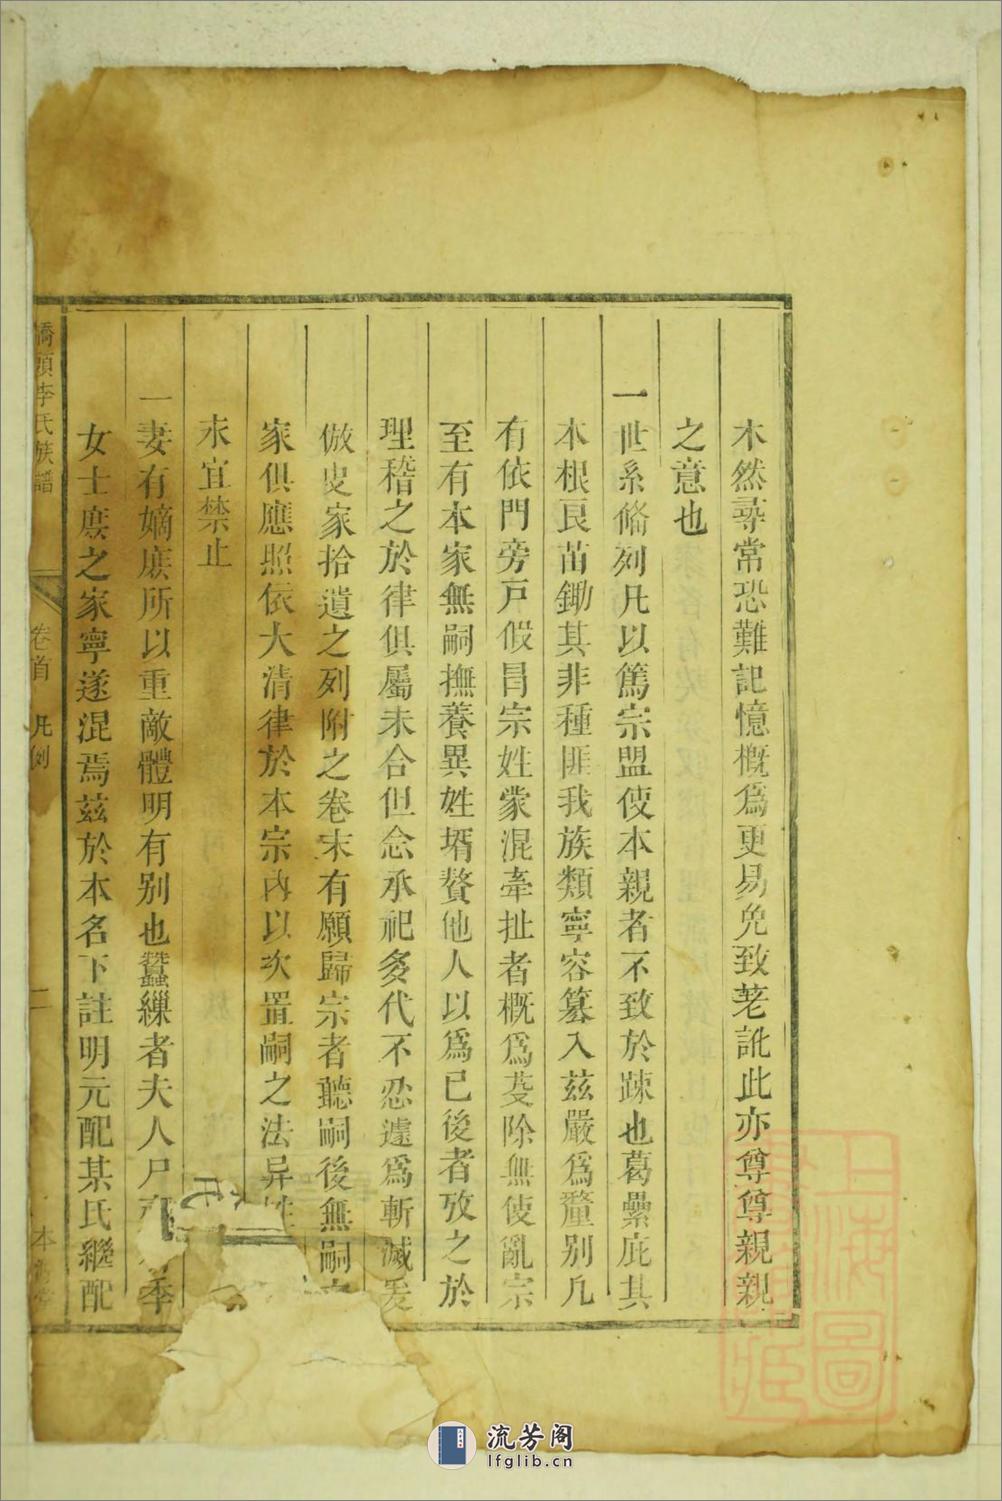 木然尋常恐難記憶概爲更易免致荖訛此亦尊尊親親
之意也
一世系條列凡以篤宗盟使本親者不致於踈也葛纍庇其
本根良苗鋤其非種匪我族類寧容篡入茲嚴爲釐别凡
有依門旁戸假冒宗姓蒙混牽扯者概爲芟除無使亂宗
至有本家無嗣撫養異姓壻贅他人以爲已後者攷之於
理稽之於律俱屬未合但念承祀多代不忍遽爲斬滅爰
倣史家拾遺之列附之卷末有願歸宗者聽嗣後無嗣
家俱應照依大清律於本宗内以次置嗣之法异姓
永宜禁止
一妻有嫡庶所以重敵體明有别也蠶繅者夫人尸季
女士庶之家寧遂混焉茲於本名下註明元配某氏繼配
橋頭李氏族譜
卷首 凡例
二
本
上海圖
流芳阁
lfglib.cn